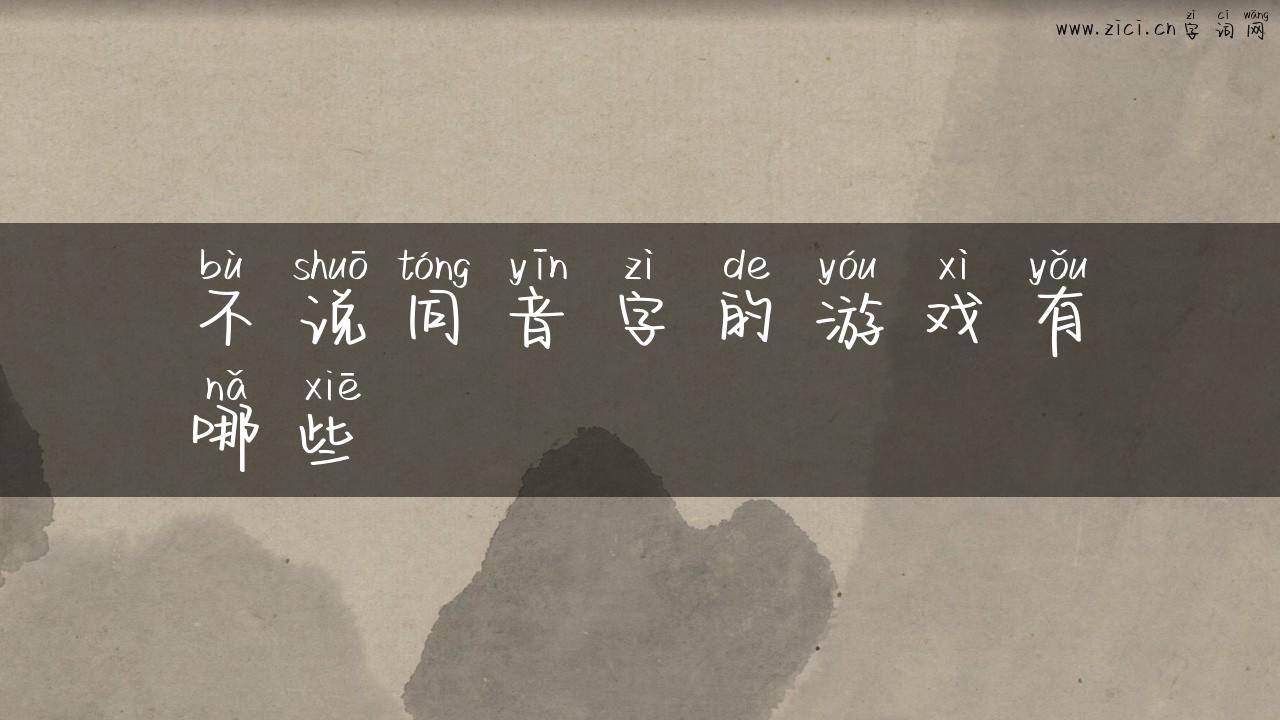 zì cí wǎng
www.zici.cn 字词网
bù shuō tóng yīn zì de yóu xì yǒu
不说同音字的游戏有
nǎ xiē
哪些